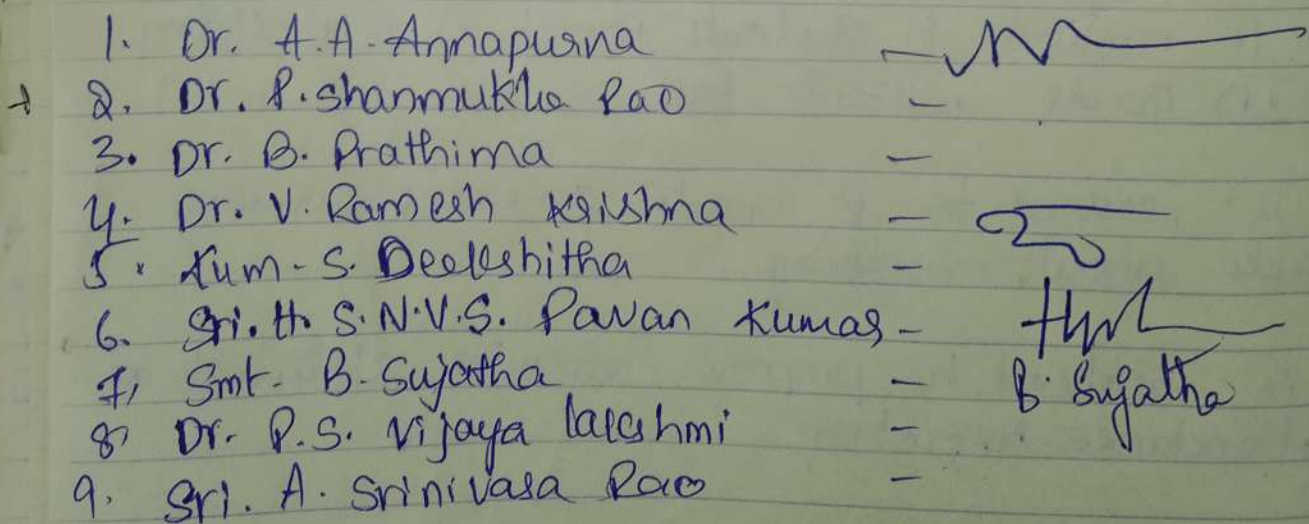 1. Dr. A.A. Annapurna -
2. Dr. P. Shanmukha Rao -
3. Dr. B. Prathima -
4. Dr. V. Ramesh Krishna -
5. Kum. S. Deekshitha -
6. Sri. H. S.N.V.S. Pavan Kumar -
7. Smt. B. Sujatha - B. Sujatha
8. Dr. P.S. Vijaya lakshmi -
9. Sri. A. Srinivasa Rao -